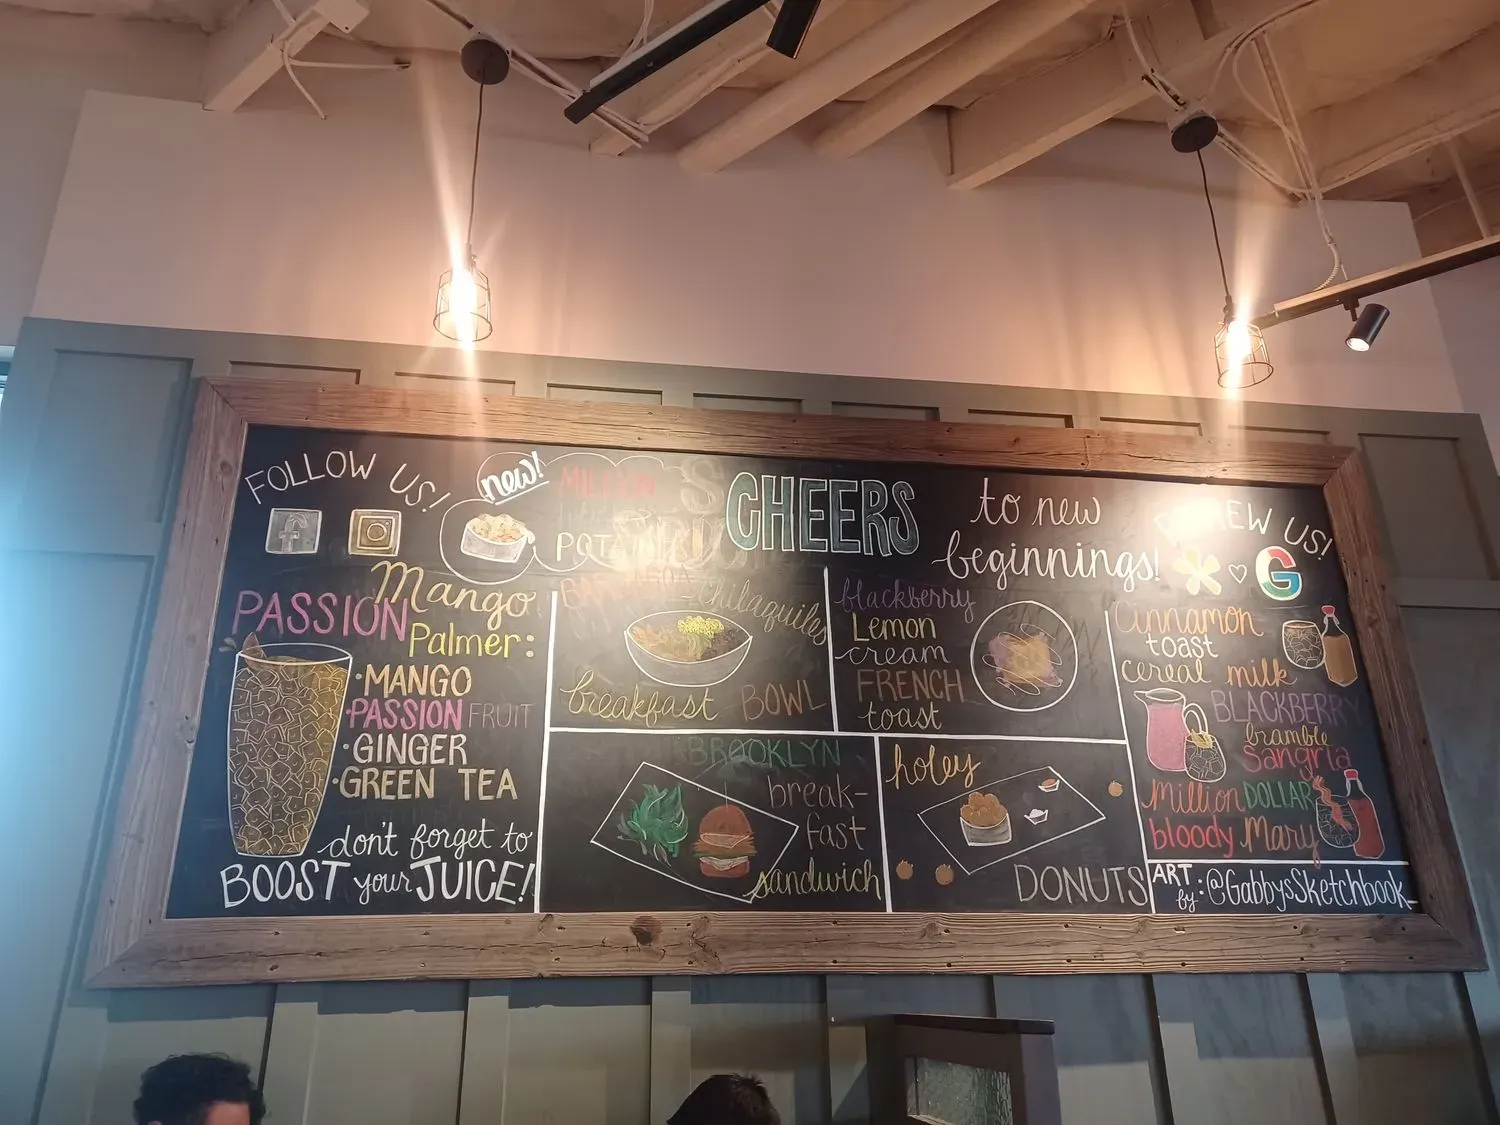 FOLLOW US!
new!
MILLION
POTATOES
CHEERS
to new
beginnings!
REVIEW US!
G
Mango
PASSION
Palmer:
·MANGO
·PASSION FRUIT
·GINGER
·GREEN TEA
don't forget to
BOOST your JUICE!
chilaquiles
breakfast BOWL
blackberry
Lemon
cream
FRENCH
toast
BROOKLYN
break-
fast
sandwich
holey
DONUTS
Cinnamon
toast
cereal milk
BLACKBERRY
bramble
sangria
Million DOLLAR
bloody Mary
ART
by: @GabbysSketchbook_